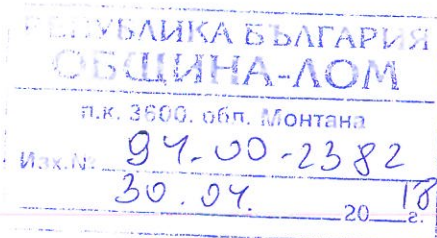 РЕПУБЛИКА БЪЛГАРИЯ
ОБЩИНА-ЛОМ
п.к. 3600, обл. Монтана
Изх.№ 94-00-2382
30.04. 2018 г.